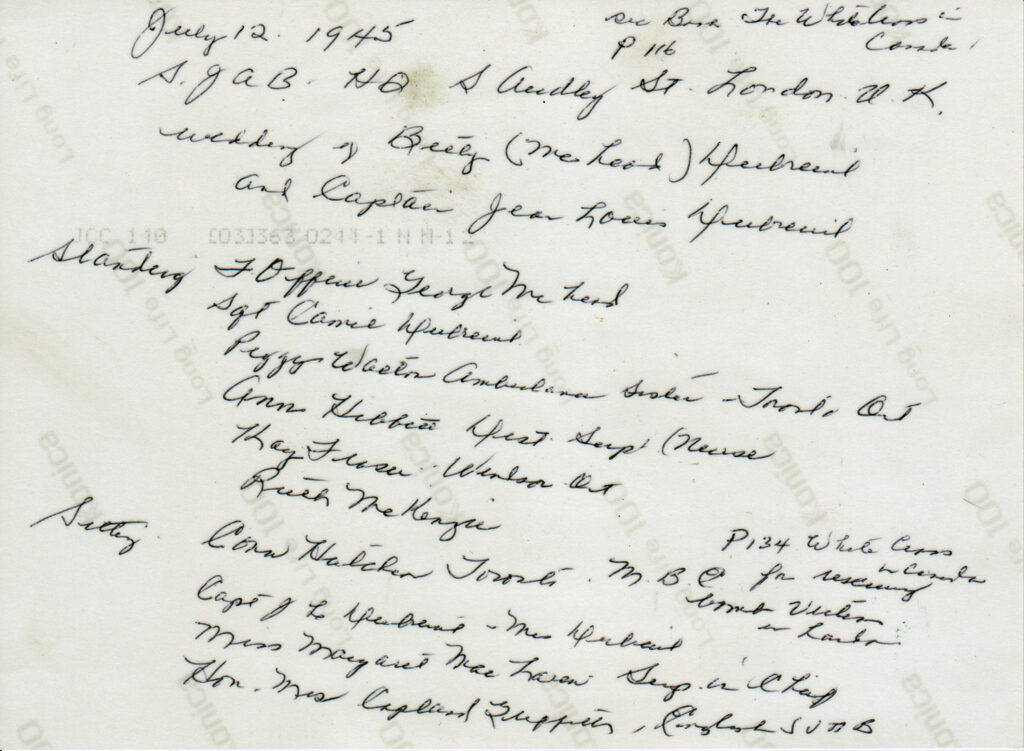 July 12. 1945
see Book The White Cross in
Canada
P 116
S. J A B. HQ S Audley St. London U.K.
wedding of Betty (McLeod) Dubreuil
and Captain Jean Louis Dubreuil
JCC 140 [03]363 0244-1 N N-1
Standing F Officer George McLeod
Sgt Camil Dubreuil
Peggy Walton Ambulance Sister - Toronto Ont
Ann Hibbitt Dist. Sup (Nurse
Kay Fraser Windsor Ont
Ruth McKenzie
Sitting. Cora Hutchen Toronto. M.B.E for rescuing
bomb Victims
in London
P134 White Cross
in Canada
Capt J L Dubreuil - Mrs Dubreuil
Miss Margaret MacLaren Sup. in Chief
Hon. Mrs Copland Griffiths, English SJAB
Konica
Long Life 100